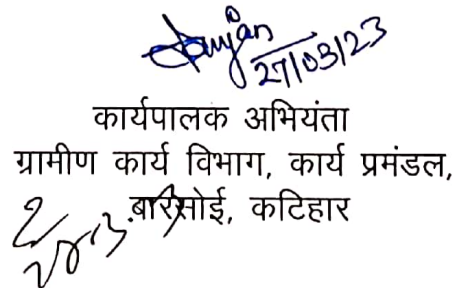 27/03/23
कार्यपालक अभियंता
ग्रामीण कार्य विभाग, कार्य प्रमंडल,
बारसोई, कटिहार